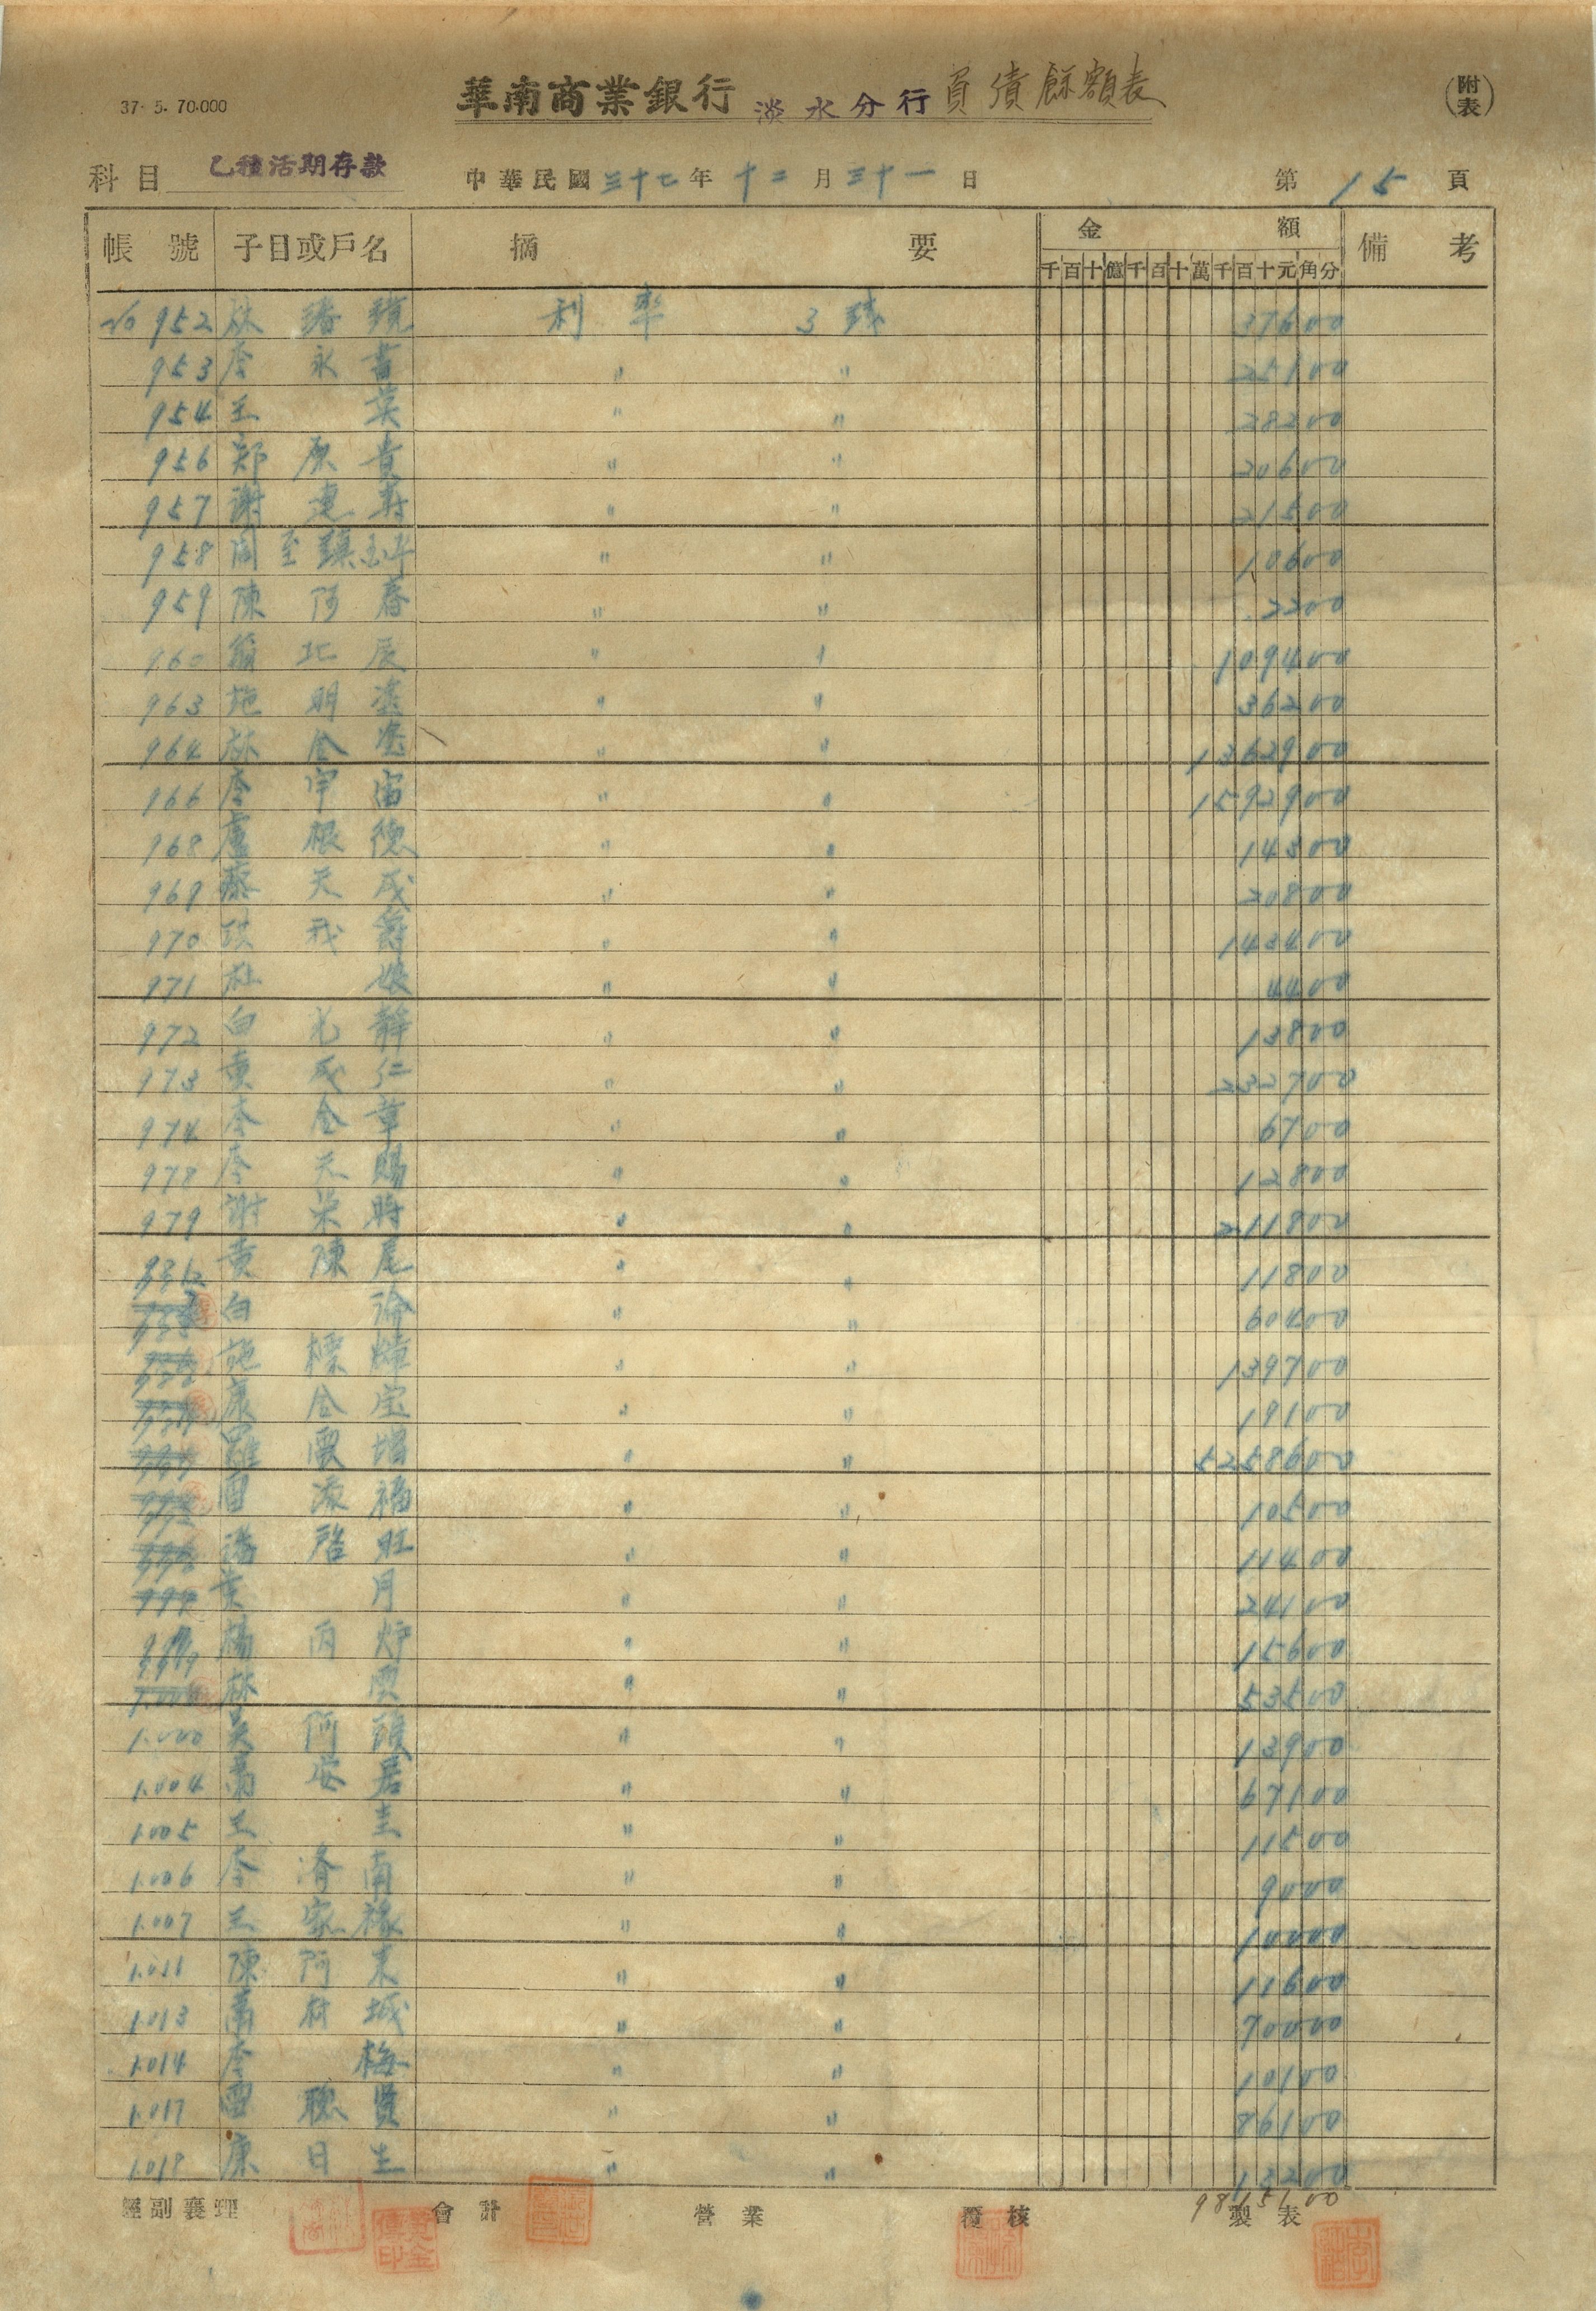 37. 5. 70.000
華南商業銀行 淡水分行 負債餘額表
(附表)
科目 乙種活期存款 中華民國三十七年十二月三十一日 第15頁
帳號 子目或戶名 摘要 金額 備考
千百十億千百十萬千百十元角分
No 952 林 利率 3 37600
953 李永書 〃 〃 25100
954 王英 〃 〃 28200
956 鄭原貴 〃 〃 20600
957 謝連壽 〃 〃 21500
958 周至鎮 〃 〃 10600
959 陳阿春 〃 〃 2200
960 翁北辰 〃 〃 109400
963 施明塗 〃 〃 36200
964 林金塗 〃 〃 1362900
966 李宇宙 〃 〃 1592900
968 盧根德 〃 〃 14300
969 蔡天成 〃 〃 20800
970 我爵 〃 〃 143400
971 杜娘 〃 〃 4400
972 白光靜 〃 〃 13800
973 黃成仁 〃 〃 232700
974 李金章 〃 〃 6700
978 李天賜 〃 〃 12800
979 謝榮時 〃 〃 211800
黃陳尾 〃 〃 11800
白論 〃 〃 60400
施標煒 〃 〃 139700
康金宝 〃 〃 19100
羅雲增 〃 〃 5258600
添福 〃 〃 10500
潘啓旺 〃 〃 11400
葉月 〃 〃 24100
楊丙炉 〃 〃 15600
林雲 〃 〃 53500
1.000 吳阿頭 〃 〃 13900
1.004 蕭安居 〃 〃 67100
1.005 王圭 〃 〃 11500
1.006 李濟南 〃 〃 9000
1.007 王家祿 〃 〃 10000
1.011 陳阿 〃 〃 11600
1.013 蕭村城 〃 〃 70000
1.014 李梅 〃 〃 10100
1.017 雷聰賢 〃 〃 86100
1.018 康日生 〃 〃 13200
9815100
經副襄理 會計 營業 覆核 製表